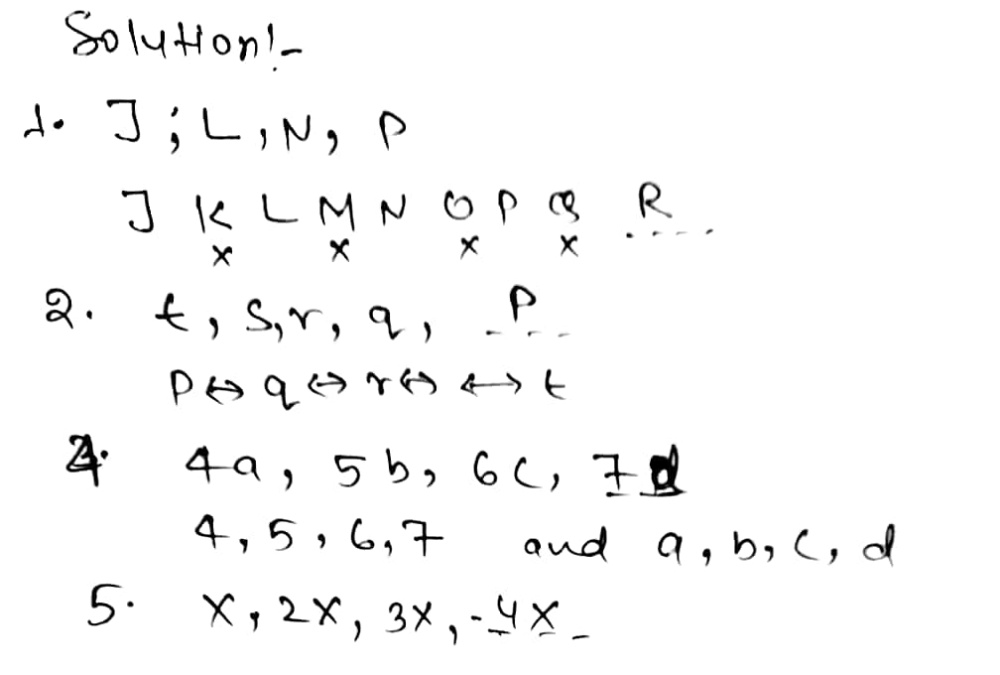 Solution:-
1. J, L, N, P
J K L M N O P Q R
x x x x
2. t, s, r, q, P
P ↔ q ↔ r ↔ ↔ t
4. 4a, 5b, 6c, 7d
4, 5, 6, 7 and a, b, c, d
5. x, 2x, 3x, -4x-